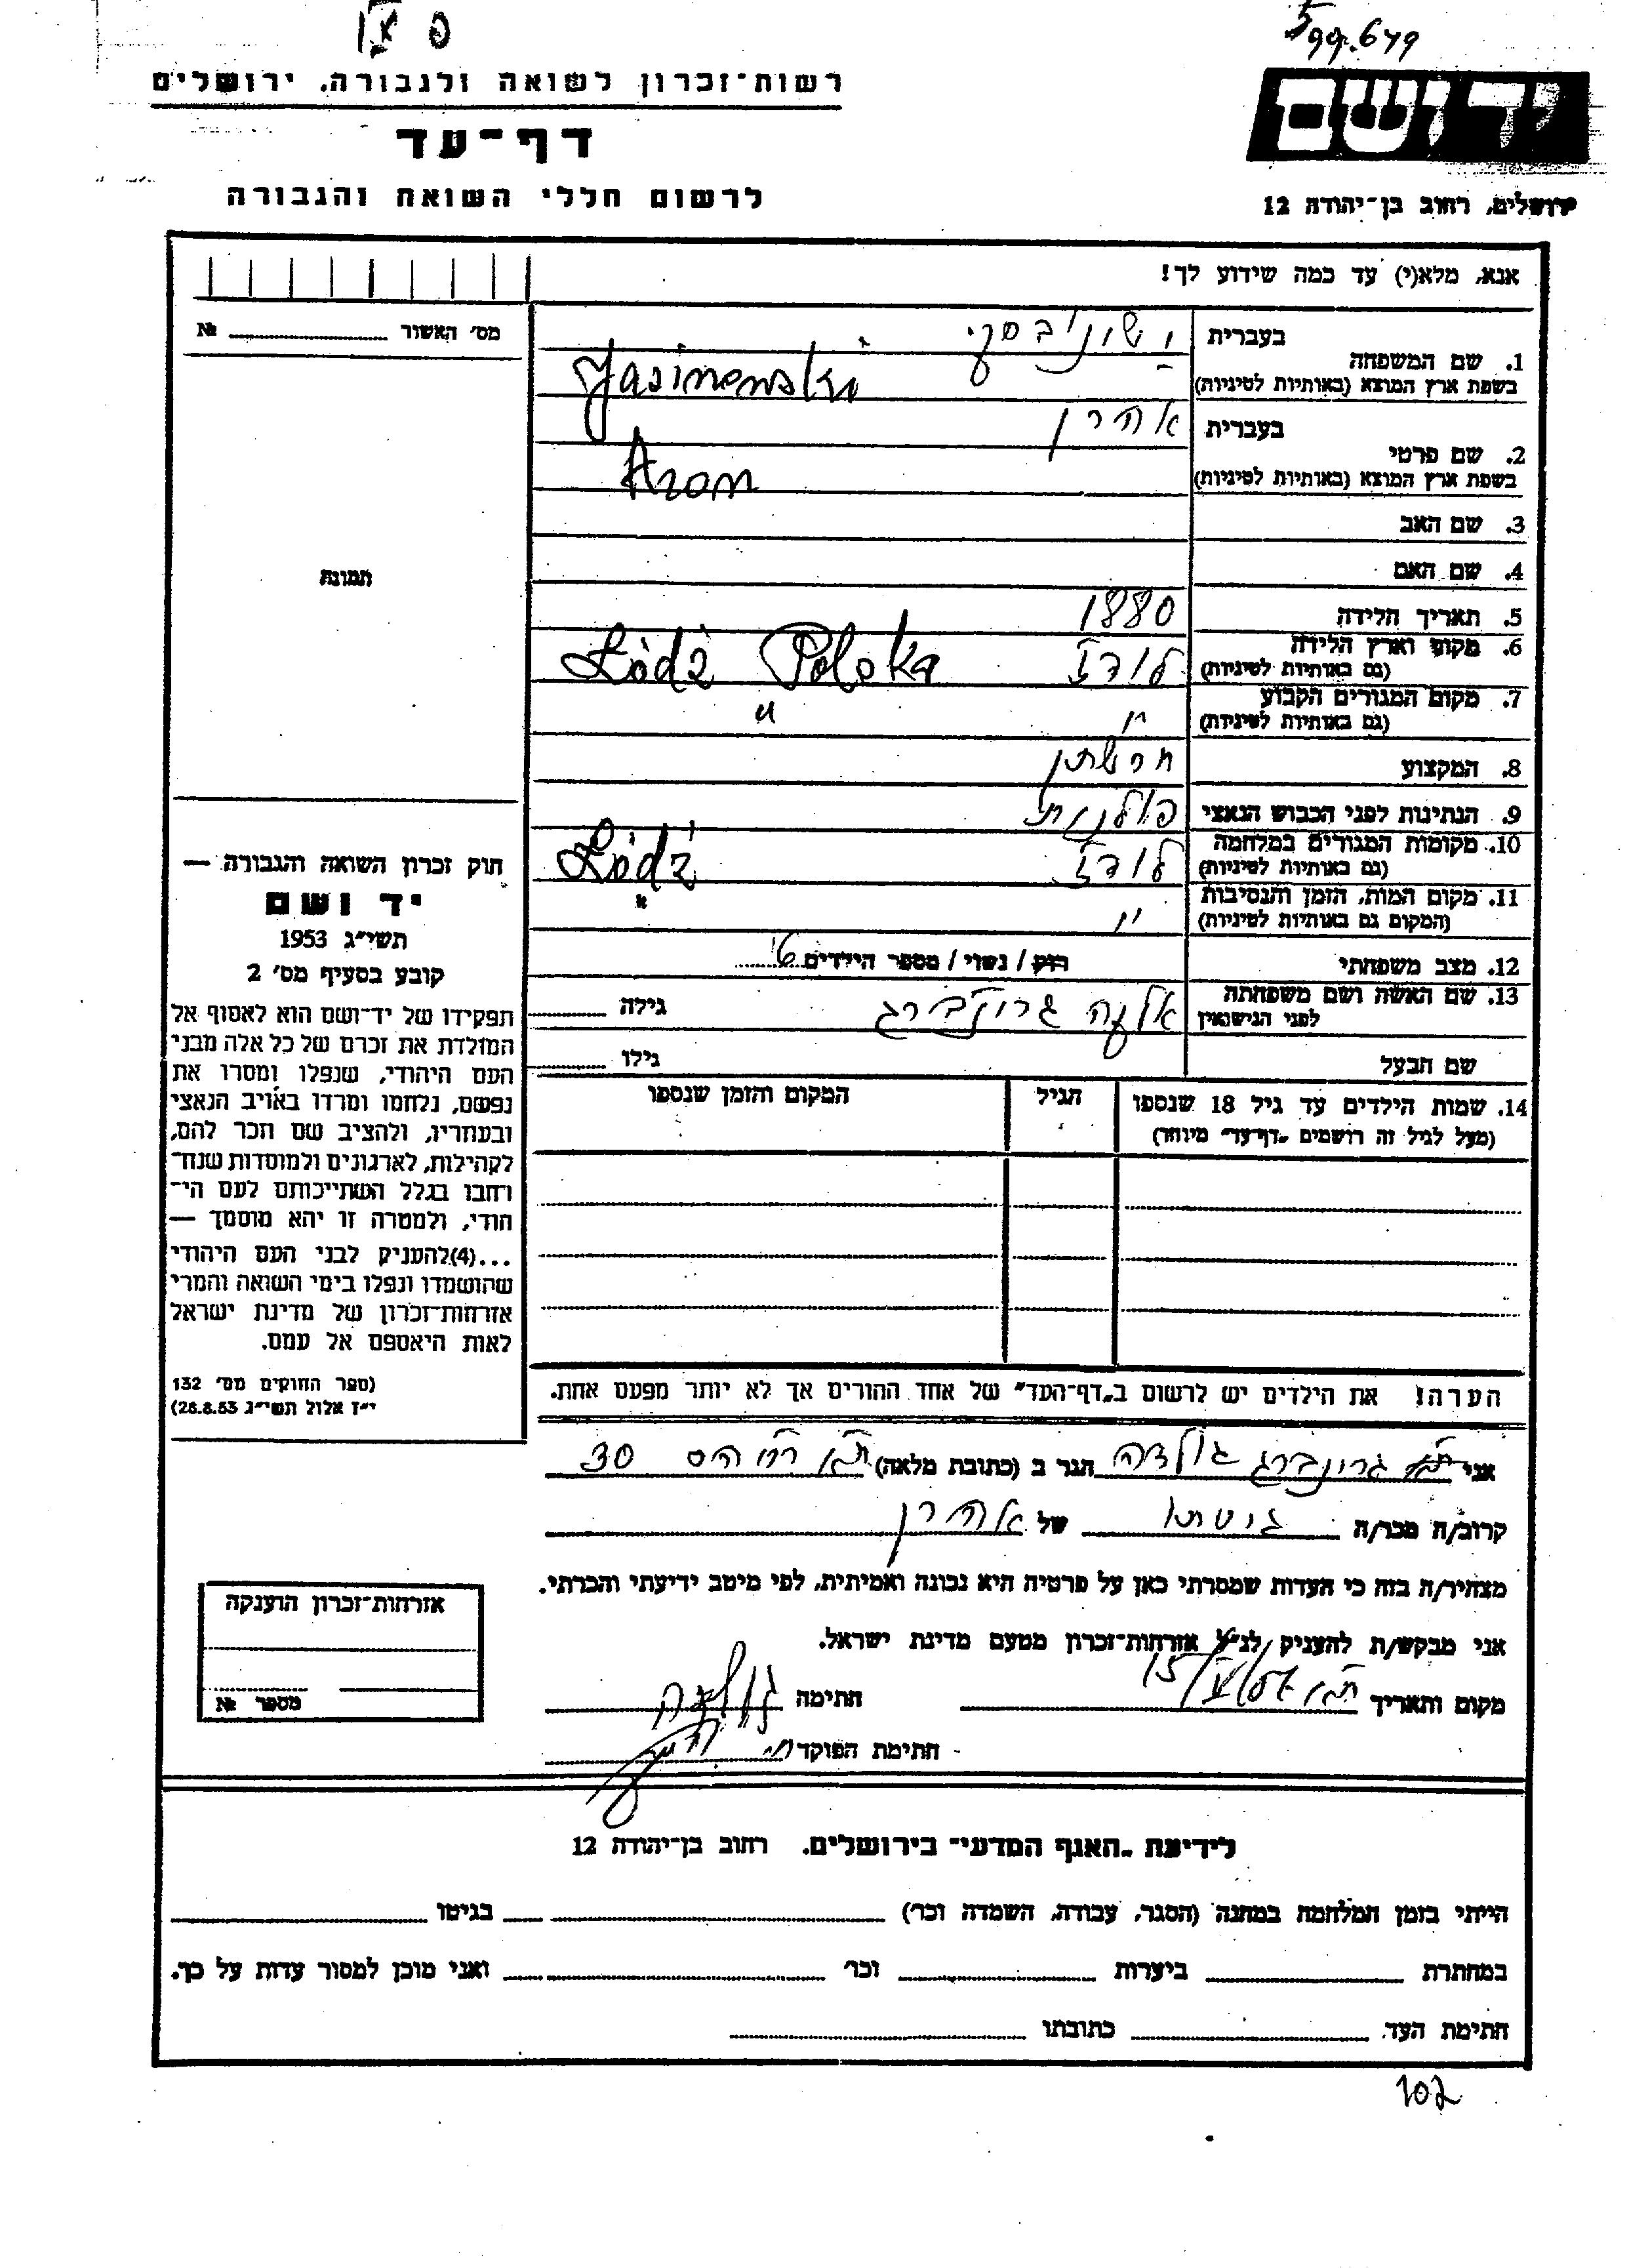 599.679
רשות־זכרון לשואה ולגבורה, ירושלים
יד ושם
דף־עד
לרשום חללי השואה והגבורה
ירושלים, רחוב בן־יהודה 12
אנא, מלא(י) עד כמה שידוע לך!
מס' האשור № 
1. שם המשפחה
בעברית
בשפת ארץ המוצא (באותיות לטיניות)
Jasinowski
2. שם פרטי
בעברית אהרן
בשפת ארץ המוצא (באותיות לטיניות)
Aron
3. שם האב
4. שם האם
תמונה
5. תאריך הלידה 1880
6. מקום וארץ הלידה (גם באותיות לטיניות) לודז' Łódź Polska
7. מקום המגורים הקבוע (גם באותיות לטיניות) " "
8. המקצוע חרשתן
9. הנתינות לפני הכבוש הנאצי פולנית
10. מקומות המגורים במלחמה (גם באותיות לטיניות) לודז' Łódź
11. מקום המות, הזמן והנסיבות (המקום גם באותיות לטיניות) " "
12. מצב משפחתי רווק / נשוי / מספר הילדים
13. שם האשה ושם משפחתה לפני הנישואין גרונברג גילה
שם הבעל גילו
14. שמות הילדים עד גיל 18 שנספו
(מעל לגיל זה רושמים „דף־עד" מיוחד)
הגיל
המקום והזמן שנספו
חוק זכרון השואה והגבורה —
יד ושם
תשי"ג 1953
קובע בסעיף מס' 2
תפקידו של יד־ושם הוא לאסוף אל
המולדת את זכרם של כל אלה מבני
העם היהודי, שנפלו ומסרו את
נפשם, נלחמו ומרדו באויב הנאצי
ובעוזריו, ולהציב שם וזכר להם,
לקהילות, לארגונים ולמוסדות שנח־
רחבו בגלל השתייכותם לעם הי־
הודי, ולמטרה זו יהא מוסמך —
...(4) להעניק לבני העם היהודי
שהושמדו ונפלו בימי השואה והמרי
אזרחות־זכרון של מדינת ישראל
לאות היאספם אל עמם.
(ספר החוקים מס' 132
י"ז אלול תשי"ג 28.8.53)
הערה! את הילדים יש לרשום ב„דף־העד" של אחד ההורים אך לא יותר מפעם אחת.
אני גרונברג גולדה הגר ב (כתובת מלאה) ת"א 30
קרוב/ה מכר/ה גיסתו של אהרן
מצהיר/ה בזה כי העדות שמסרתי כאן על פרטיה היא נכונה ואמיתית, לפי מיטב ידיעתי והכרתי.
אני מבקש/ת להעניק לנ"ל אזרחות־זכרון מטעם מדינת ישראל.
מקום ותאריך ת"א חתימה גולדה
חתימת הפוקד
אזרחות־זכרון הוענקה
מספר №
לידיעת „האגף המדעי" בירושלים, רחוב בן־יהודה 12
הייתי בזמן המלחמה במחנה (הסגר, עבודה, השמדה וכו') בגיטו
במחתרת ביערות וכו' ואני מוכן למסור עדות על כך.
חתימת העד כתובתו
102